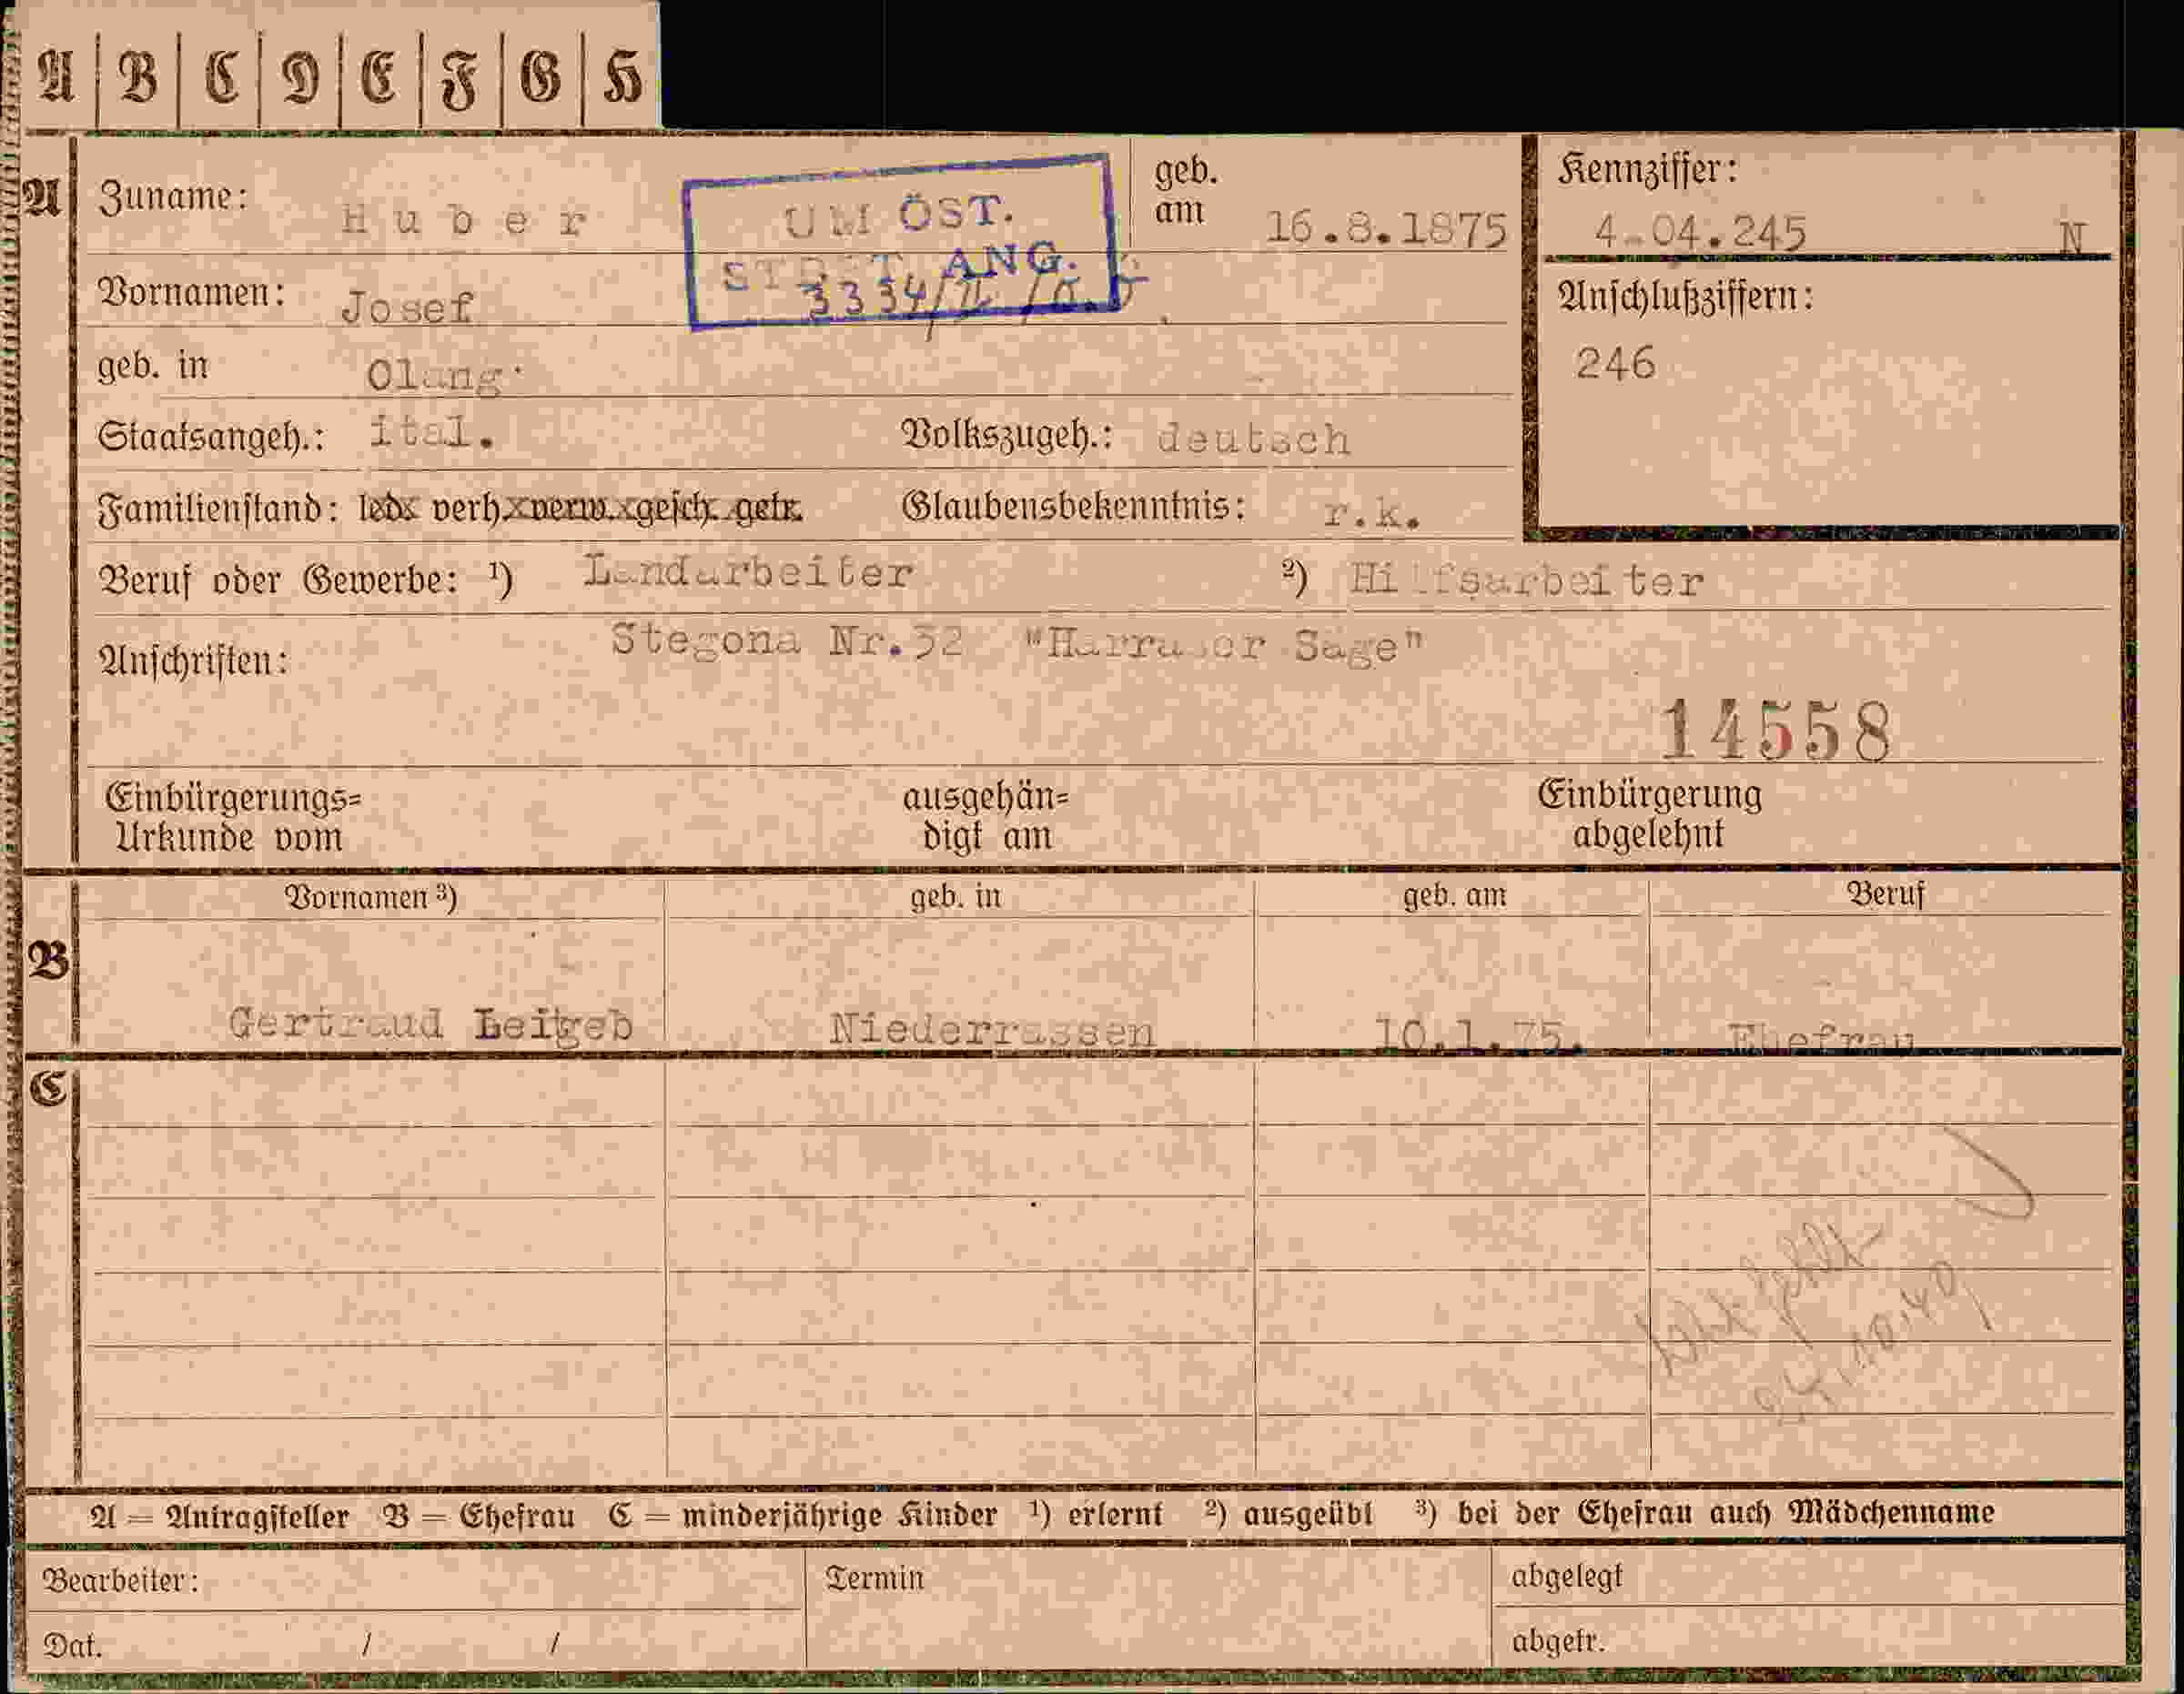 A B C D E F G H
A Zuname: Huber geb. am 16.8.1875
UM ÖST.
ST ANG.
Kennziffer: 4-04.245 N
Vornamen: Josef
Anschlußziffern:
246
geb. in Olang
Staatsangeh.: ital. Volkszugeh.: deutsch
Familienstand: led. verh. verw. gesch. getr. Glaubensbekenntnis: r.k.
Beruf oder Gewerbe: ¹) Landarbeiter ²) Hilfsarbeiter
Anschriften: Stegona Nr.32 "Harrasser Säge"
14558
Einbürgerungs= Urkunde vom ausgehän= digt am Einbürgerung abgelehnt
Vornamen ³) geb. in geb. am Beruf
B Gertraud Leitgeb Niederrassen 10.1.75. Ehefrau
C
24.10.40
A = Antragsteller B = Ehefrau C = minderjährige Kinder ¹) erlernt ²) ausgeübt ³) bei der Ehefrau auch Mädchenname
Bearbeiter: Termin abgelegt
Dat. / / abgetr.